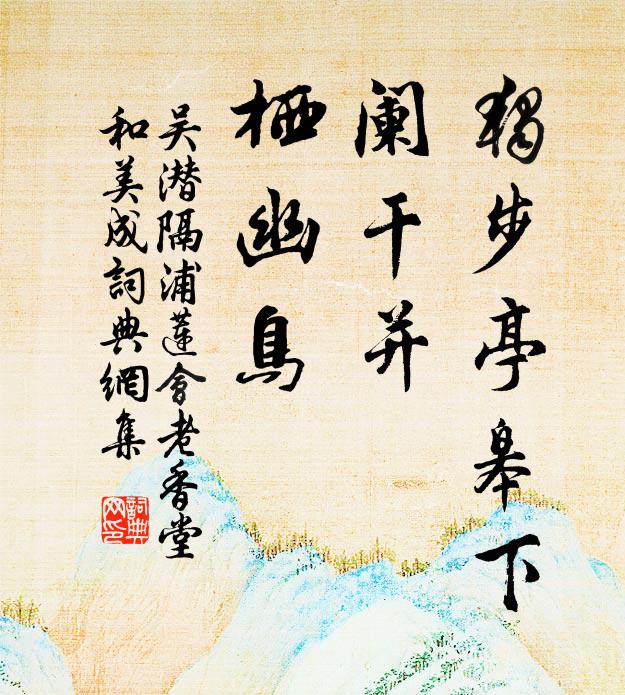 獨步亭皋下
阑干并
栖幽鳥
吴潜隔浦蓮會老香堂
和美成詞典網集
詞典網印